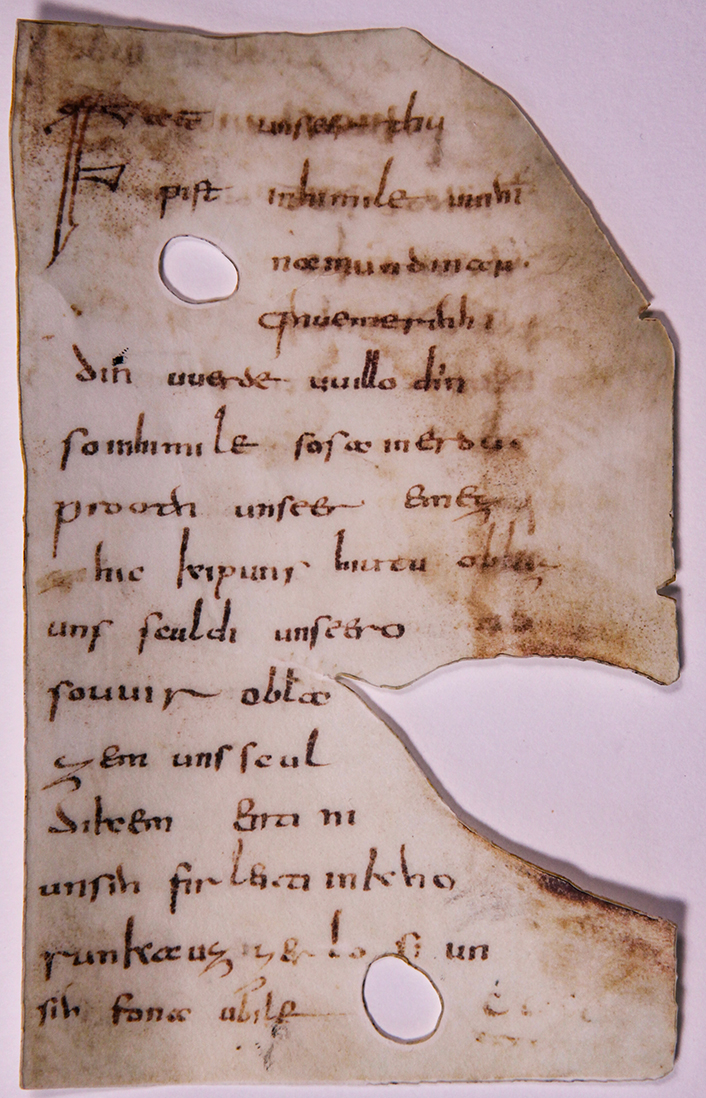 Fater unseer thu
pist inhimile uuihi
namun dinan
qhueme rihhi
din uuerde uuillo din
so inhimile sosa in erdu
prooth unseer emez
hic kipuns hiutu oblaz
uns sculdi unseero
so uuir obla
zem uns scul
dikem enti ni
unsih firleiti in kho
runka uzzer lo si un
sih fona ubile